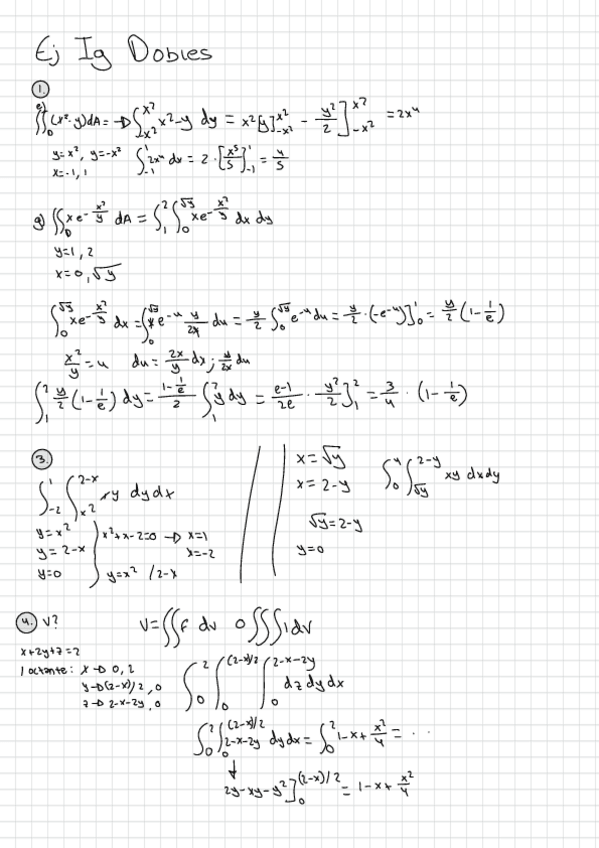 Ej Ig Dobles
1.
e) ∬_D (x²-y)dA = → ∫_{-x²}^{x²} x²-y dy = x²[y]_{-x²}^{x²} - y²/2 ]_{-x²}^{x²} = 2x⁴
y=x², y=-x² ∫_{-1}^{1} 2x⁴ dx = 2·[x⁵/5]_{-1}^{1} = 4/5
x=-1, 1
g) ∬_D xe^{-x²/y} dA = ∫_1^2 ∫_0^{√y} xe^{-x²/y} dx dy
y=1, 2
x=0, √y
∫_0^{√y} xe^{-x²/y} dx = ∫_0^{√y} x e^{-u} y/2x du = y/2 ∫_0^{√y} e^{-u} du = y/2 · (-e^{-u})]_0^1 = y/2 (1-1/e)
x²/y = u du = 2x/y dx; y/2x du
∫_1^2 y/2 (1-1/e) dy = (1-1/e)/2 ∫_1^2 y dy = (e-1)/2e · y²/2 ]_1^2 = 3/4 · (1-1/e)
3.
∫_{-2}^{1} ∫_{x²}^{2-x} xy dy dx
y=x²
y=2-x
y=0
x²+x-2=0 → x=1
x=-2
y=x² / 2-x
x=√y
x=2-y
√y=2-y
y=0
∫_0^4 ∫_{√y}^{2-y} xy dx dy
4. V?
V=∬f dv o ∭1dV
x+2y+z=2
1 octante: x → 0, 2
y → (2-x)/2, 0
z → 2-x-2y, 0
∫_0^2 ∫_0^{(2-x)/2} ∫_0^{2-x-2y} dz dy dx
∫_0^2 ∫_0^{(2-x)/2} 2-x-2y dy dx = ∫_0^2 1-x+x²/4 = ...
↓
2y-xy-y²]_0^{(2-x)/2} = 1-x+x²/4